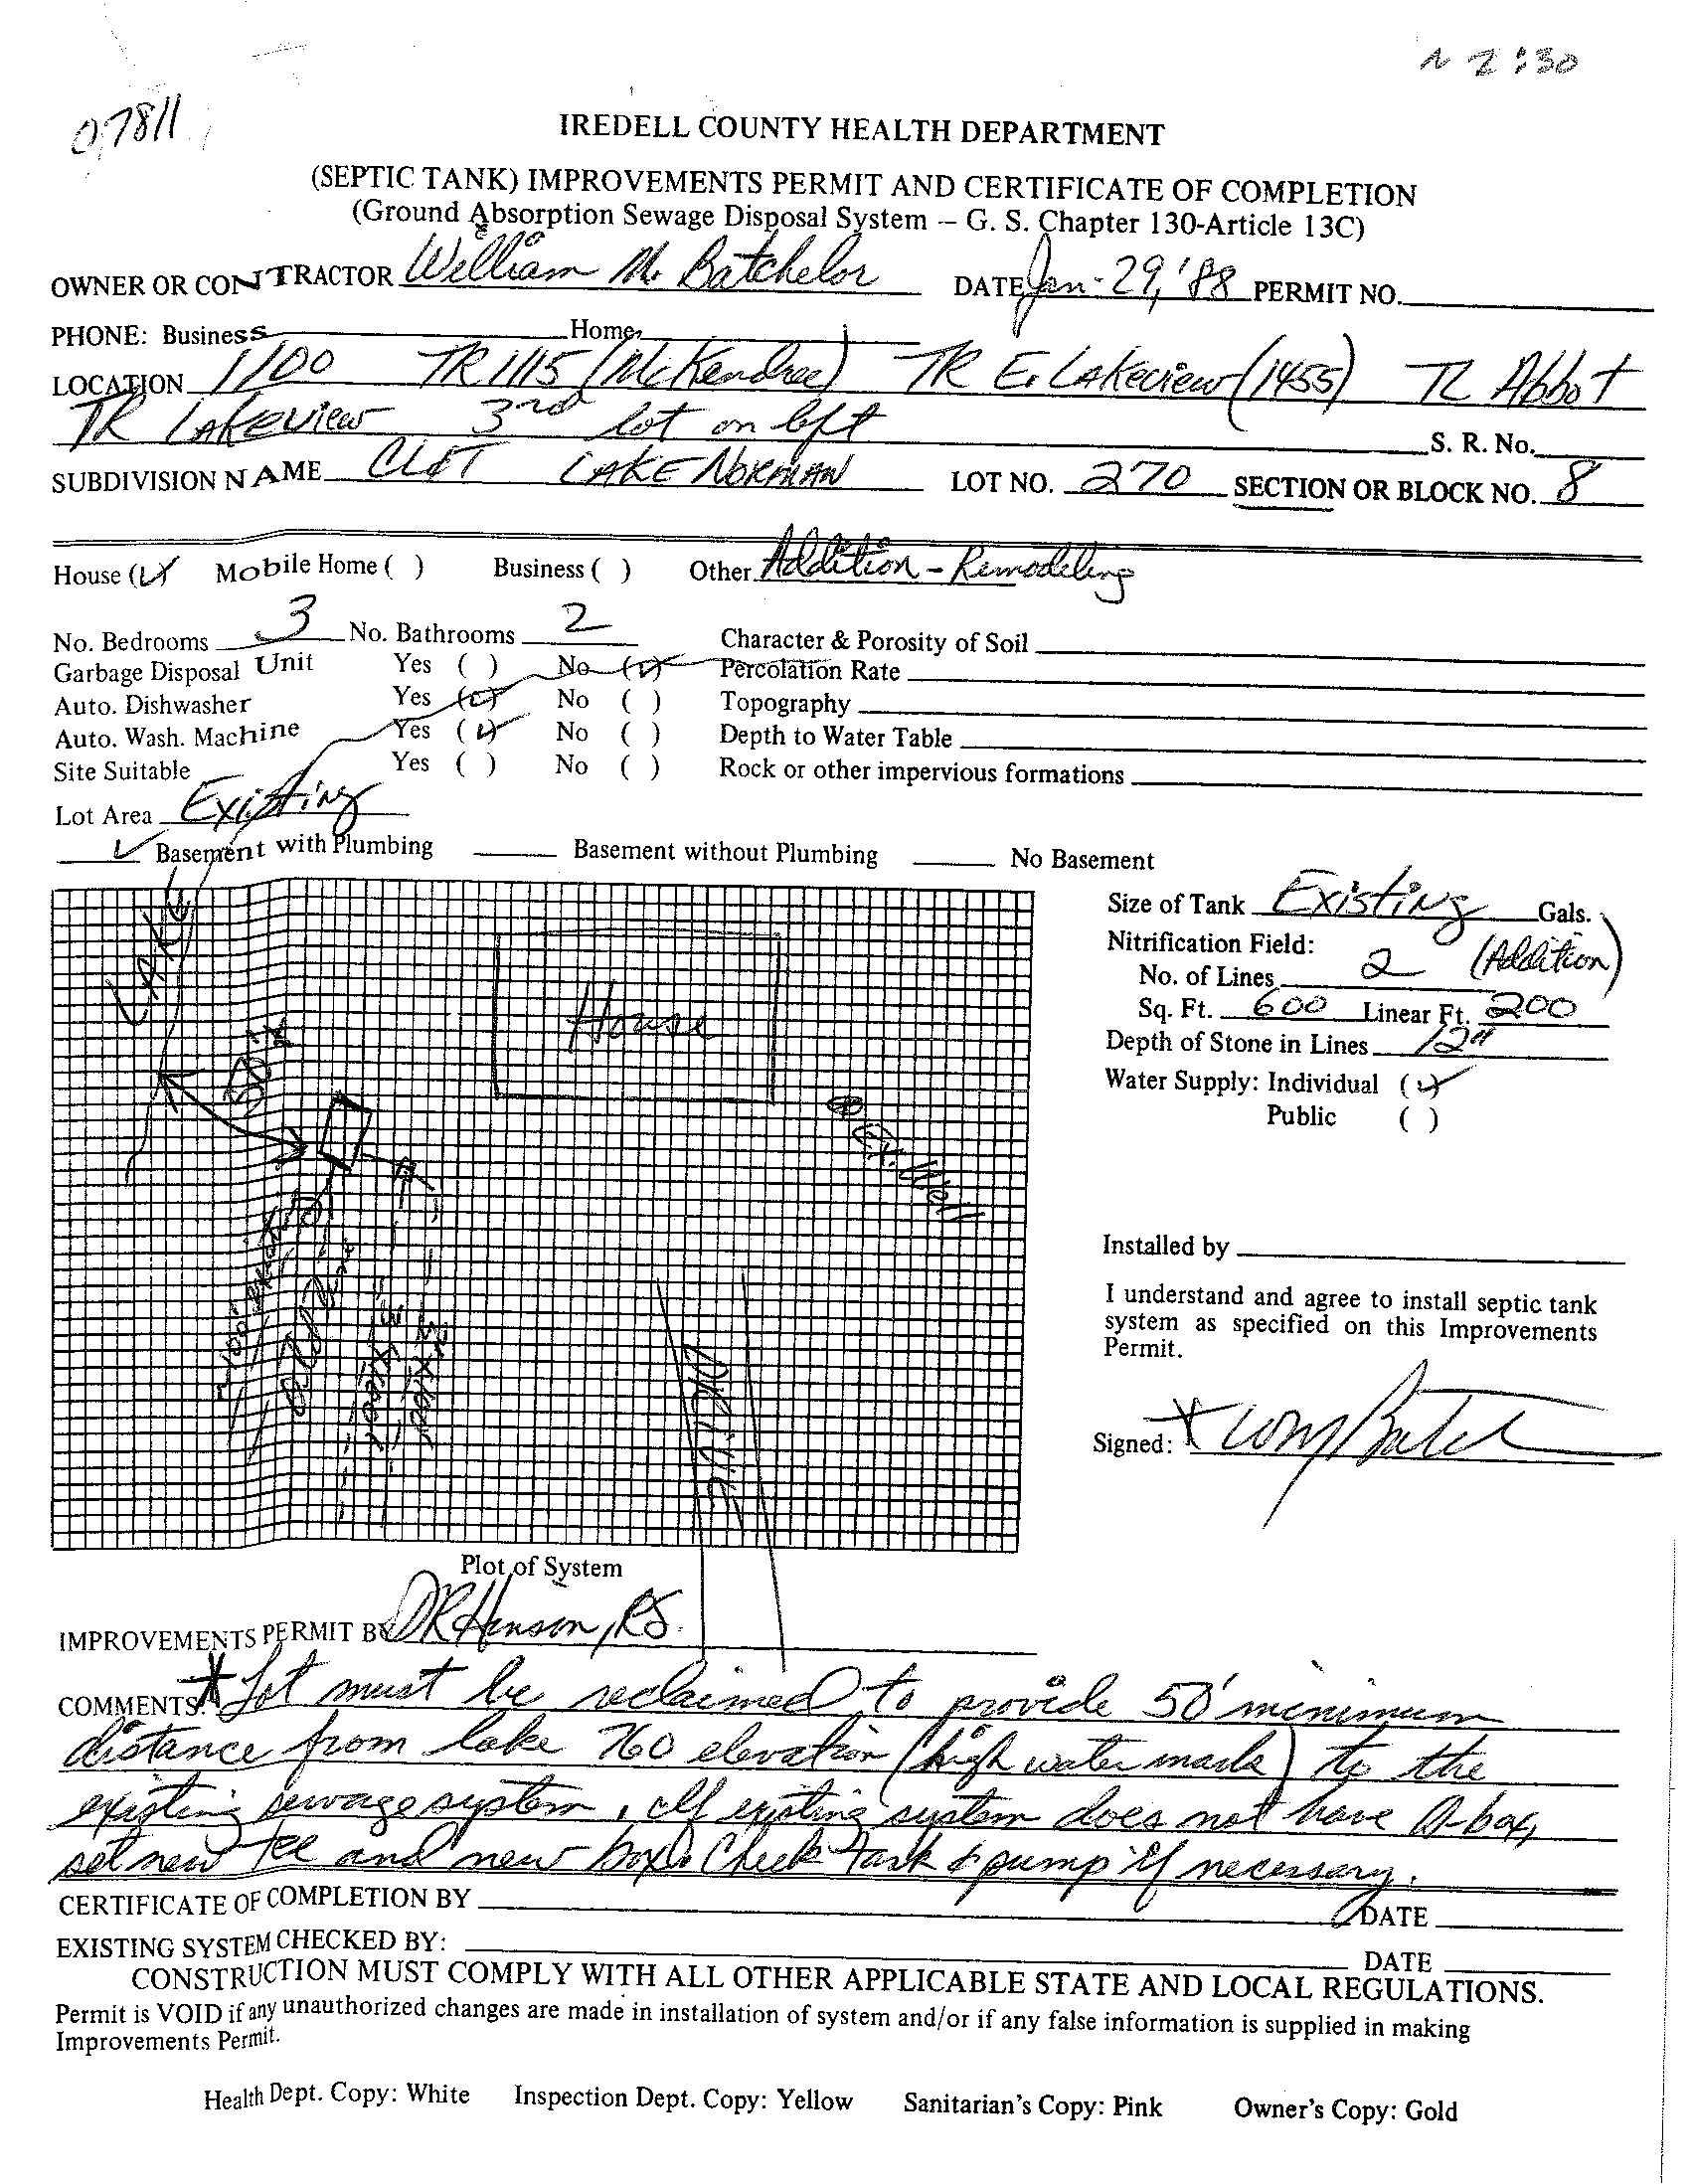 ~ 2:30
07811
IREDELL COUNTY HEALTH DEPARTMENT
(SEPTIC TANK) IMPROVEMENTS PERMIT AND CERTIFICATE OF COMPLETION
(Ground Absorption Sewage Disposal System -- G. S. Chapter 130-Article 13C)
OWNER OR CONTRACTOR William M. Batchelor DATE Jan. 29, '88 PERMIT NO.
PHONE: Business Home
LOCATION 1100 TR 1115 (McKendree) TR E. Lakeview (1455) TL Abbot
TR Lakeview 3rd lot on left S. R. No.
SUBDIVISION NAME LAKE NORMAN LOT NO. 270 SECTION OR BLOCK NO. 8
House (✓) Mobile Home ( ) Business ( ) Other Addition - Remodeling
No. Bedrooms 3 No. Bathrooms 2 Character & Porosity of Soil
Garbage Disposal Unit Yes ( ) No (✓) Percolation Rate
Auto. Dishwasher Yes (✓) No ( ) Topography
Auto. Wash. Machine Yes (✓) No ( ) Depth to Water Table
Site Suitable Yes ( ) No ( ) Rock or other impervious formations
Lot Area Existing
✓ Basement with Plumbing Basement without Plumbing No Basement
LAKE
House
50'*
Ex. Well
100'x3'
100'x3'
DRIVE
Size of Tank Existing Gals.
Nitrification Field:
No. of Lines 2 (Addition)
Sq. Ft. 600 Linear Ft. 200
Depth of Stone in Lines 12"
Water Supply: Individual (✓)
Public ( )
Installed by
I understand and agree to install septic tank
system as specified on this Improvements
Permit.
Signed: X
Plot of System
IMPROVEMENTS PERMIT BY DR Henson, RS.
COMMENTS: * Lot must be reclaimed to provide 50' minimum
distance from lake 760 elevation (high water mark) to the
existing sewage system. If existing system does not have D-box,
set new tee and new box. Check tank & pump if necessary.
CERTIFICATE OF COMPLETION BY DATE
EXISTING SYSTEM CHECKED BY: DATE
CONSTRUCTION MUST COMPLY WITH ALL OTHER APPLICABLE STATE AND LOCAL REGULATIONS.
Permit is VOID if any unauthorized changes are made in installation of system and/or if any false information is supplied in making
Improvements Permit.
Health Dept. Copy: White Inspection Dept. Copy: Yellow Sanitarian's Copy: Pink Owner's Copy: Gold